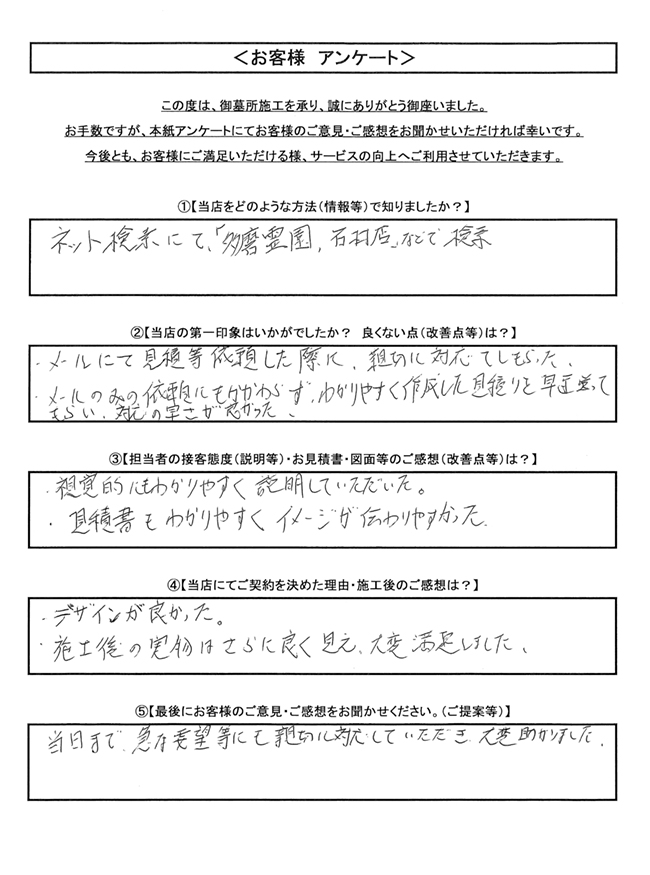 ＜お客様 アンケート＞
この度は、御墓所施工を承り、誠にありがとう御座いました。
お手数ですが、本紙アンケートにてお客様のご意見・ご感想をお聞かせいただければ幸いです。
今後とも、お客様にご満足いただける様、サービスの向上へご利用させていただきます。
①【当店をどのような方法（情報等）で知りましたか？】
ネット検索にて、「多磨霊園, 石材店」などで検索
②【当店の第一印象はいかがでしたか？ 良くない点（改善点等）は？】
・メールにて見積等依頼した際に、親切に対応してもらった、
・メールのみの依頼にもかかわらず、わかりやすく作成した見積りを早速送って
もらい、対応の早さが良かった、
③【担当者の接客態度（説明等）・お見積書・図面等のご感想（改善点等）は？】
・視覚的にもわかりやすく説明していただいた。
・見積書もわかりやすくイメージが伝わりやすかった.
④【当店にてご契約を決めた理由・施工後のご感想は？】
・デザインが良かった。
・施工後の実物はさらに良く見え、大変満足しました、
⑤【最後にお客様のご意見・ご感想をお聞かせください。（ご提案等）】
当日まで、急な要望等にも親切に対応していただき 大変助かりました、